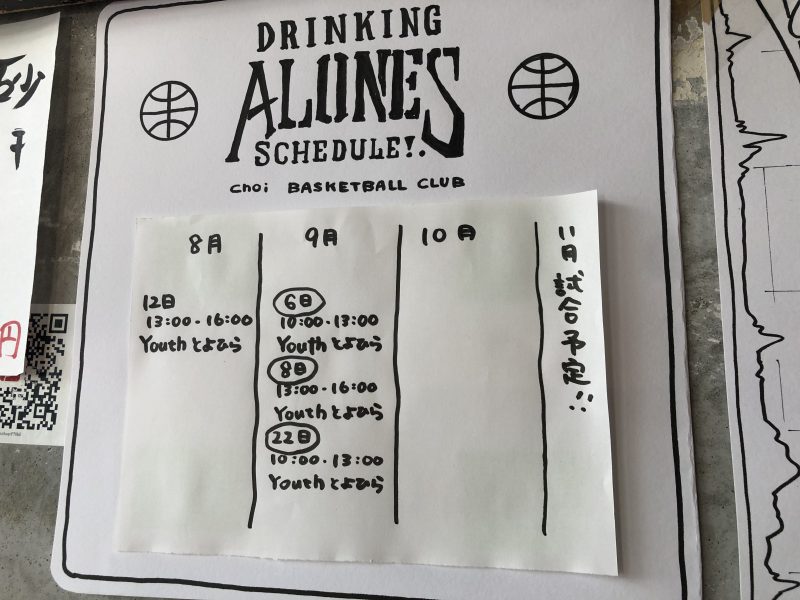 DRINKING
ALONES
SCHEDULE!.
choi BASKETBALL CLUB
8月
12日
13:00-16:00
Youth とよひら
9月
6日
10:00-13:00
Youth とよひら
8日
13:00-16:00
Youth とよひら
22日
10:00-13:00
Youth とよひら
10月
11月 試合予定!!
円